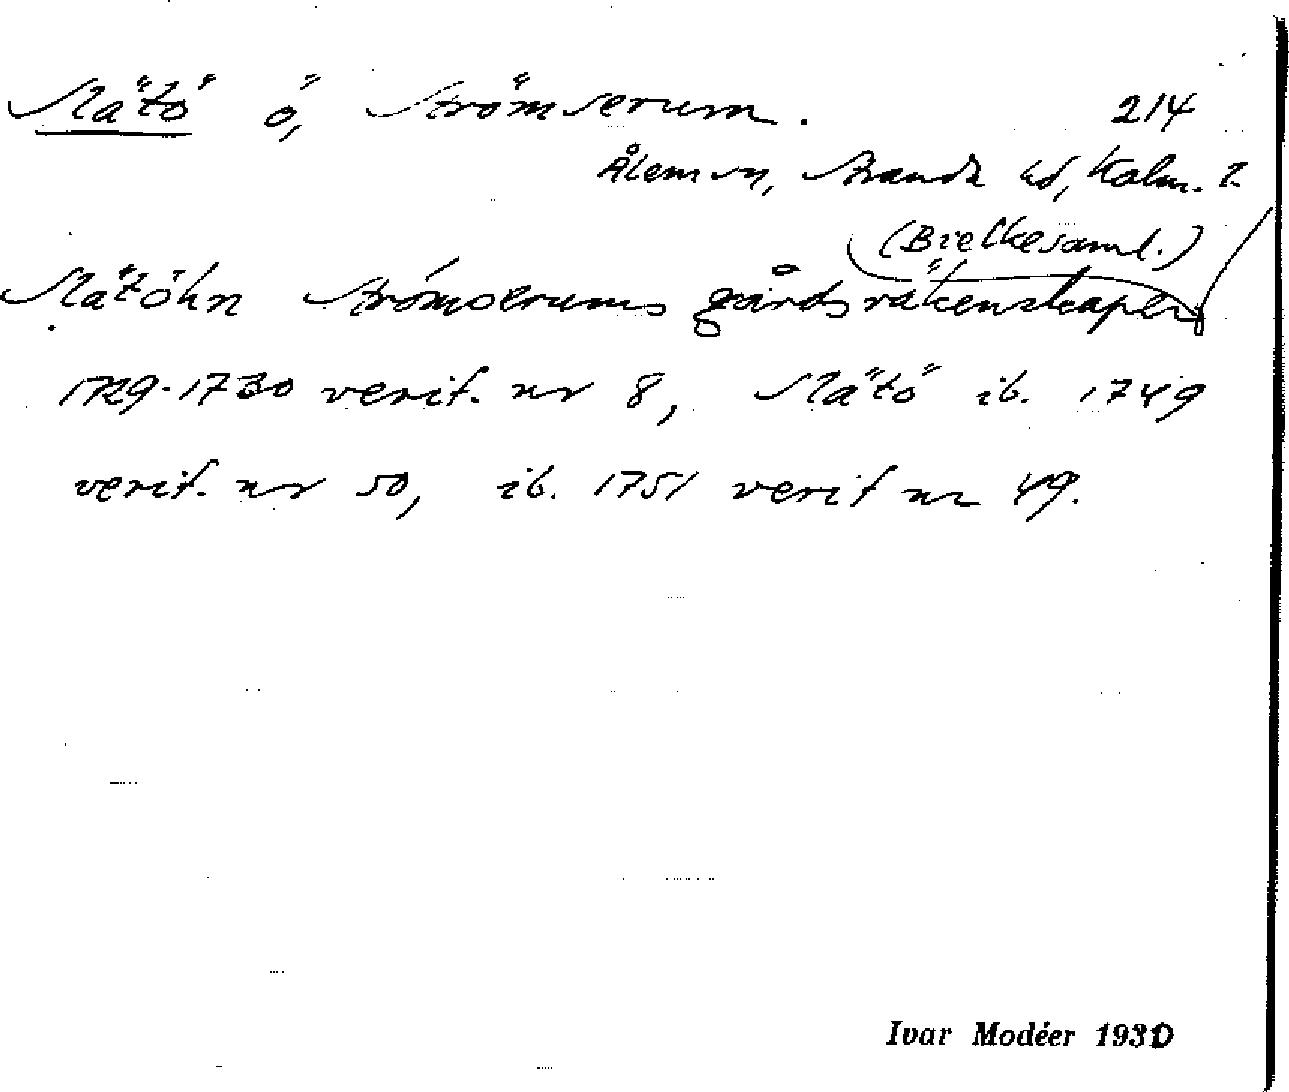 Nätö ö, Strömserum. 214
Ålem sn, Stranda hd, Kalm. l.
(Bielkesaml.)
Nätöhn Strömserums gårdsräkenskaper
1729-1730 verif. nr 8, Nätö ib. 1749
verif. nr 50, ib. 1751 verif nr 49.
Ivar Modéer 1930